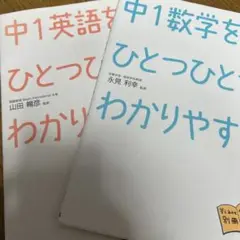 中1英語を
ひとつひとつ
わかりやす
山田暢彦 監修
中1数学を
ひとつひと
わかりやす
永見利幸
別冊